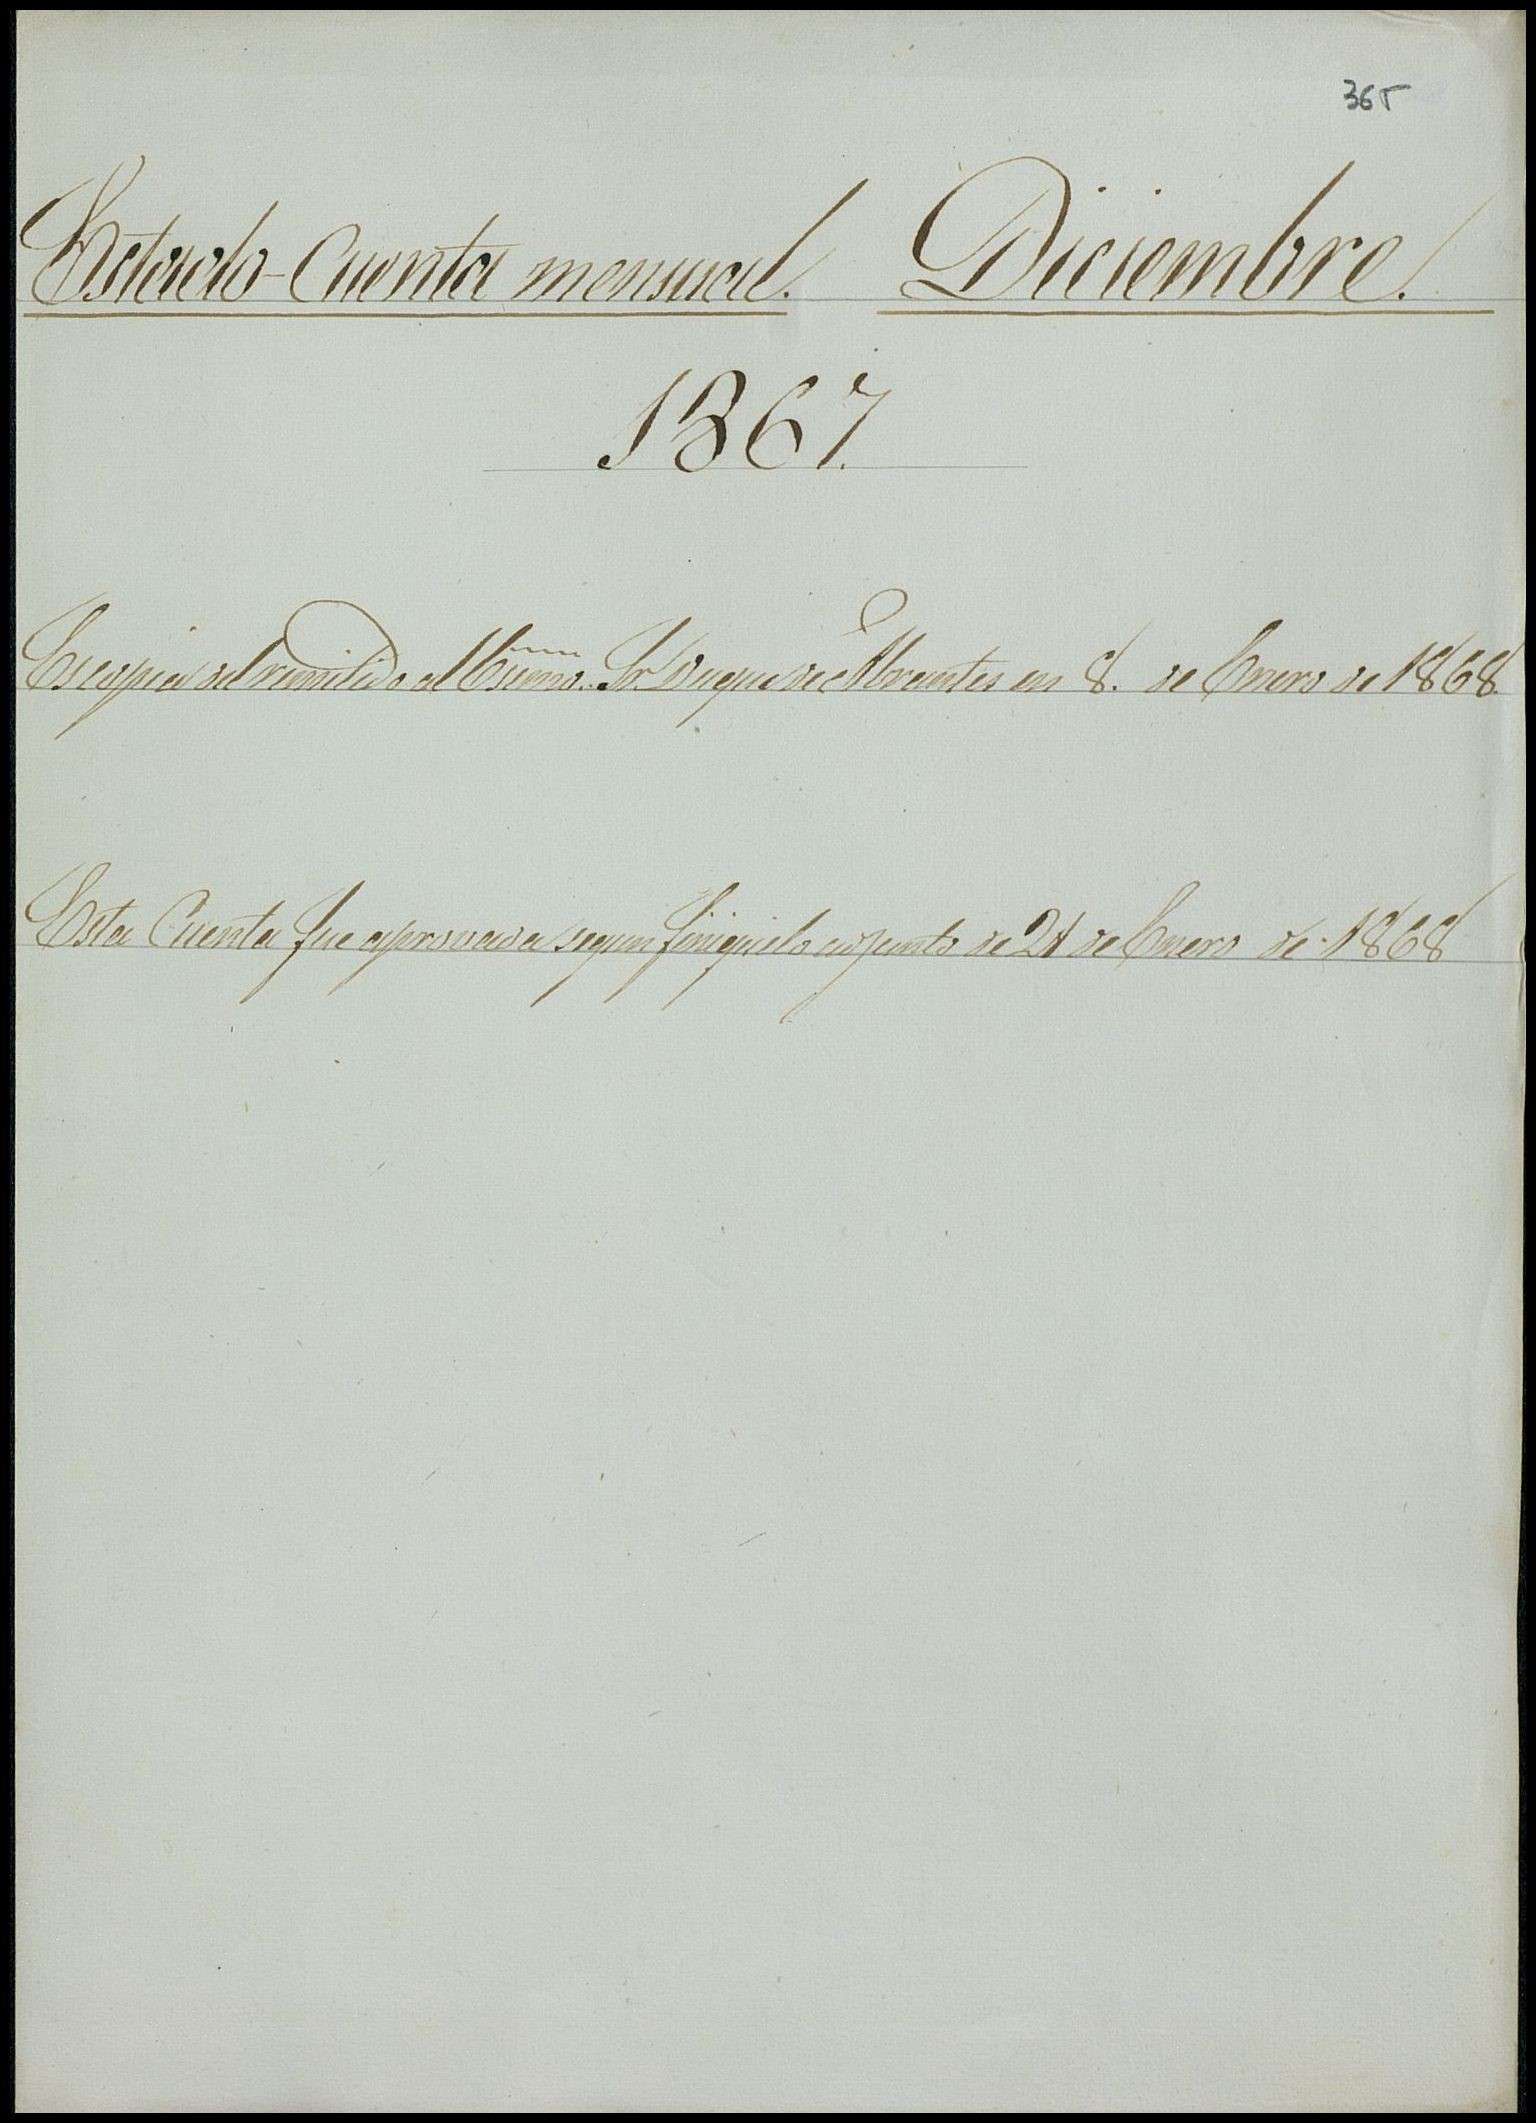 365
Estado-Cuenta mensual. Diciembre.
1867.
Es copia del remitido al Exmo. Sr. Duque de Abrantes en 8. de Enero de 1868.
Esta Cuenta fue aprovada segun finiquito adjunto de 21 de Enero de 1868